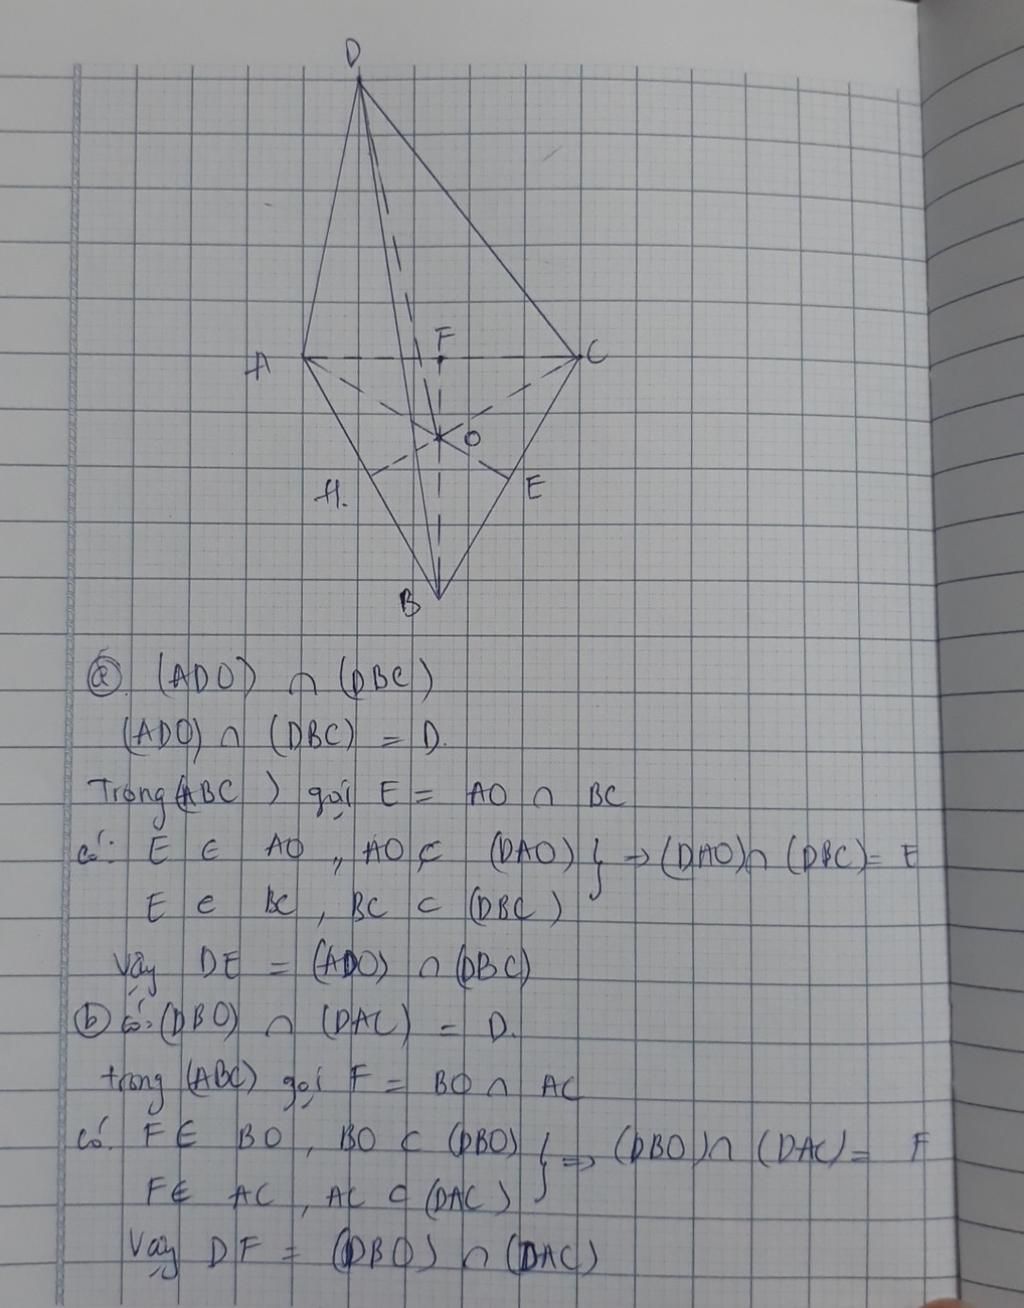 D
F
A
C
O
H.
E
B
ⓐ (ADO) ∩ (DBC)
(ADO) ∩ (DBC) = D.
Trong (ABC) gọi E = AO ∩ BC
có: E ∈ AO, AO ⊂ (DAO) } ⇒ (DAO) ∩ (DBC) = E
E ∈ BC, BC ⊂ (DBC)
Vậy DE = (ADO) ∩ (DBC)
ⓑ có: (DBO) ∩ (DAC) = D.
trong (ABC) gọi F = BO ∩ AC
có F ∈ BO, BO ⊂ (DBO) } ⇒ (DBO) ∩ (DAC) = F
F ∈ AC, AC ⊂ (DAC)
Vậy DF = (DBO) ∩ (DAC)